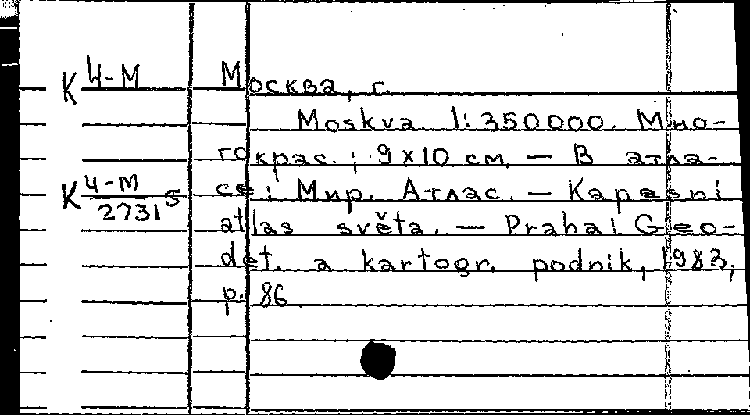 К 4-М
Москва, г.
Moskva 1:350000. Мно-
гокрас.; 9х10 см. — В атла-
К 4-М
27315
се: Мир. Атлас. — Kapesní
atlas světa. — Praha: Geo-
det. a kartogr. podnik, 1983,
p. 86